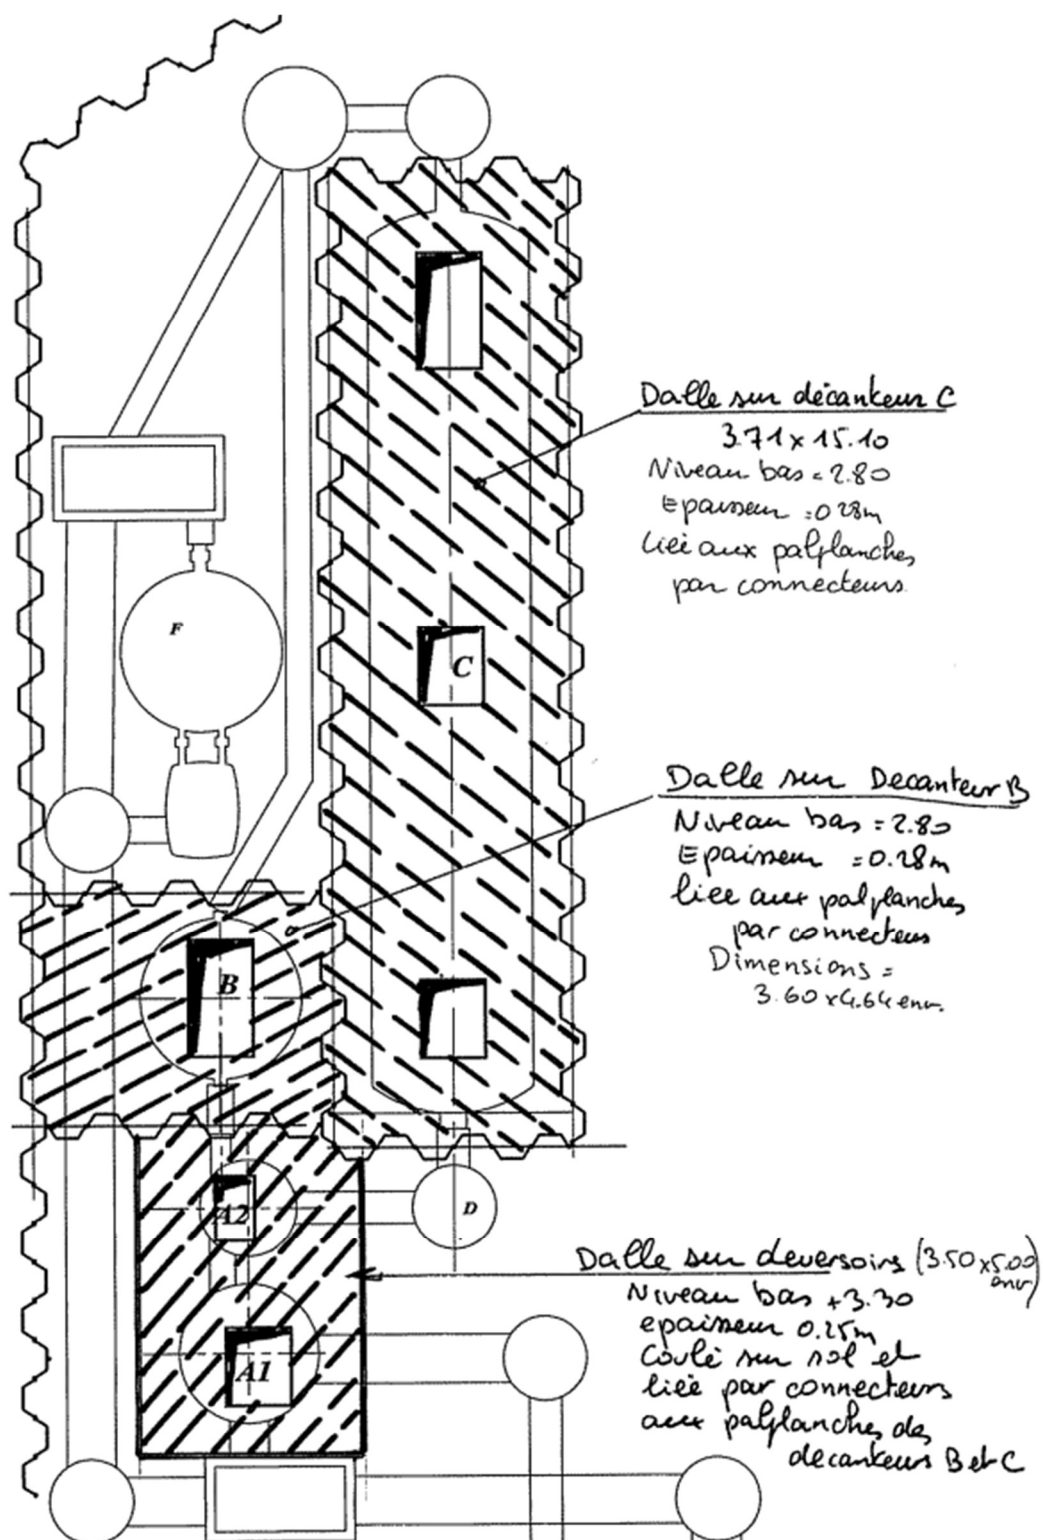 Dalle sur décanteur C
3.71 x 15.10
Niveau bas = 2.80
Epaisseur = 0.28m
liée aux palplanches
par connecteurs
F
C
Dalle sur Decanteur B
Niveau bas = 2.80
Epaisseur = 0.28m
liée aux palplanches
par connecteurs
Dimensions =
3.60 x 4.64 env.
B
A2
D
Dalle sur deversoirs (3.50 x 5.00 env.)
Niveau bas + 3.30
epaisseur 0.25m
Coulé sur sol et
liée par connecteurs
aux palplanches des
decanteurs B et C
A1